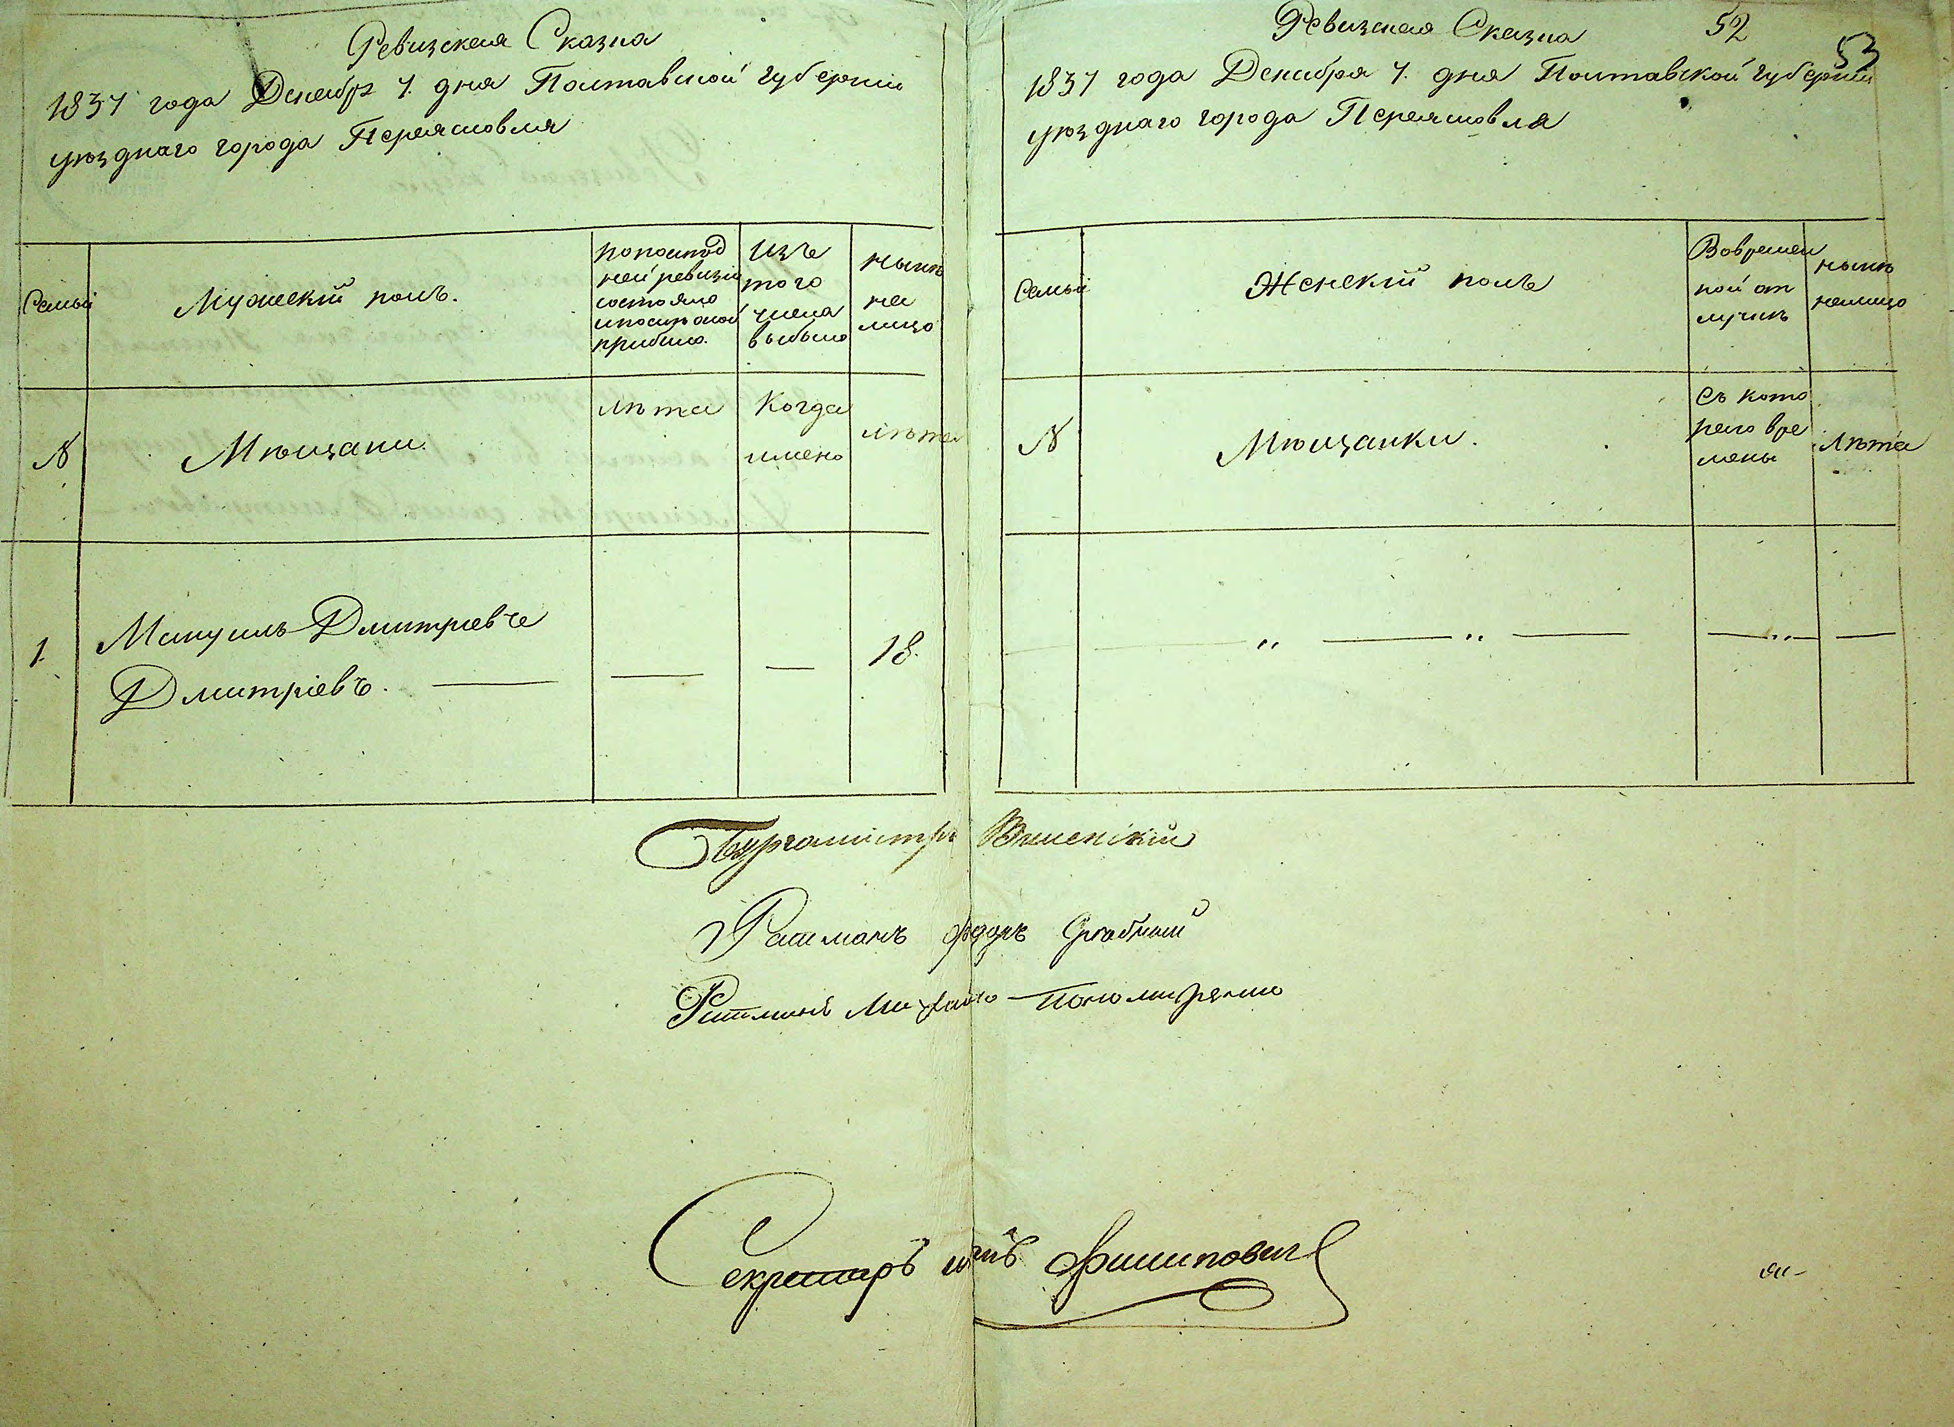 Ревизская Сказка
1837 года Декабря 7. дня Полтавской губернии
уѣзднаго города Переяслова
Семьи
Мужескій полъ.
по послѣд
ней ревизіи
состояло
и послѣ оной
прибыло.
Изъ
того
числа
выбыло
нынѣ
на
лицо
№
Мѣщани.
лѣта
Когда
имено
лѣта
1.
Мануилъ Дмитріевъ
Дмитріевъ.
18.
Ревизская Сказка
52
53
1837 года Декабря 7. дня Полтавской губерніи
уѣзднаго города Переяслова
Семьи
Женскій полъ
Вовремен
ной от
лучкѣ
нынѣ
налицо
№
Мѣщанки.
Съ кото
раго вре
мены
Лѣта
Бургомистръ
Ратманъ Федоръ
Ратманъ Михайло Пономаренко
Секретаръ Филиповичъ